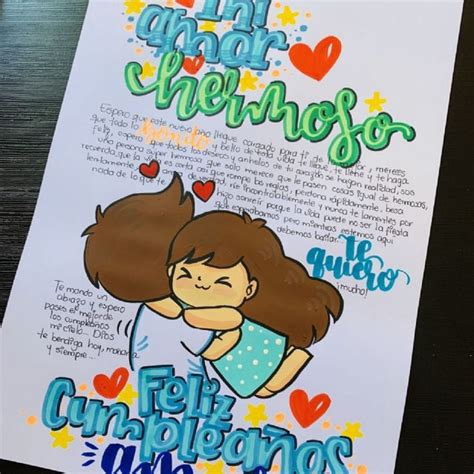 mi
amor
hermoso
Espero que este nuevo año llegue cargado para ti de amor, mereces
que todo lo bonito y bello de la vida te llegue, te llene y te haga
feliz, espero que todos los deseos y anhelos de tu corazón se hagan realidad, sos
una persona super hermosa que solo merece que le pasen cosas igual de hermosas,
recuerda que la vida es corta así que rompe las reglas, perdona rápidamente, besa
lentamente, de verdad, ríe incontrolablemente y nunca te lamentes por
nada de lo que te sonreír porque la vida puede no ser la fiesta
que esperábamos pero mientras estemos aquí
debemos bailar.
te
quiero
¡mucho!
Te mando un
abrazo y espero
pases el mejor de
los cumpleaños
mi cielo... Dios
te bendiga hoy, mañana
y siempre...!
Feliz
Cumpleaños